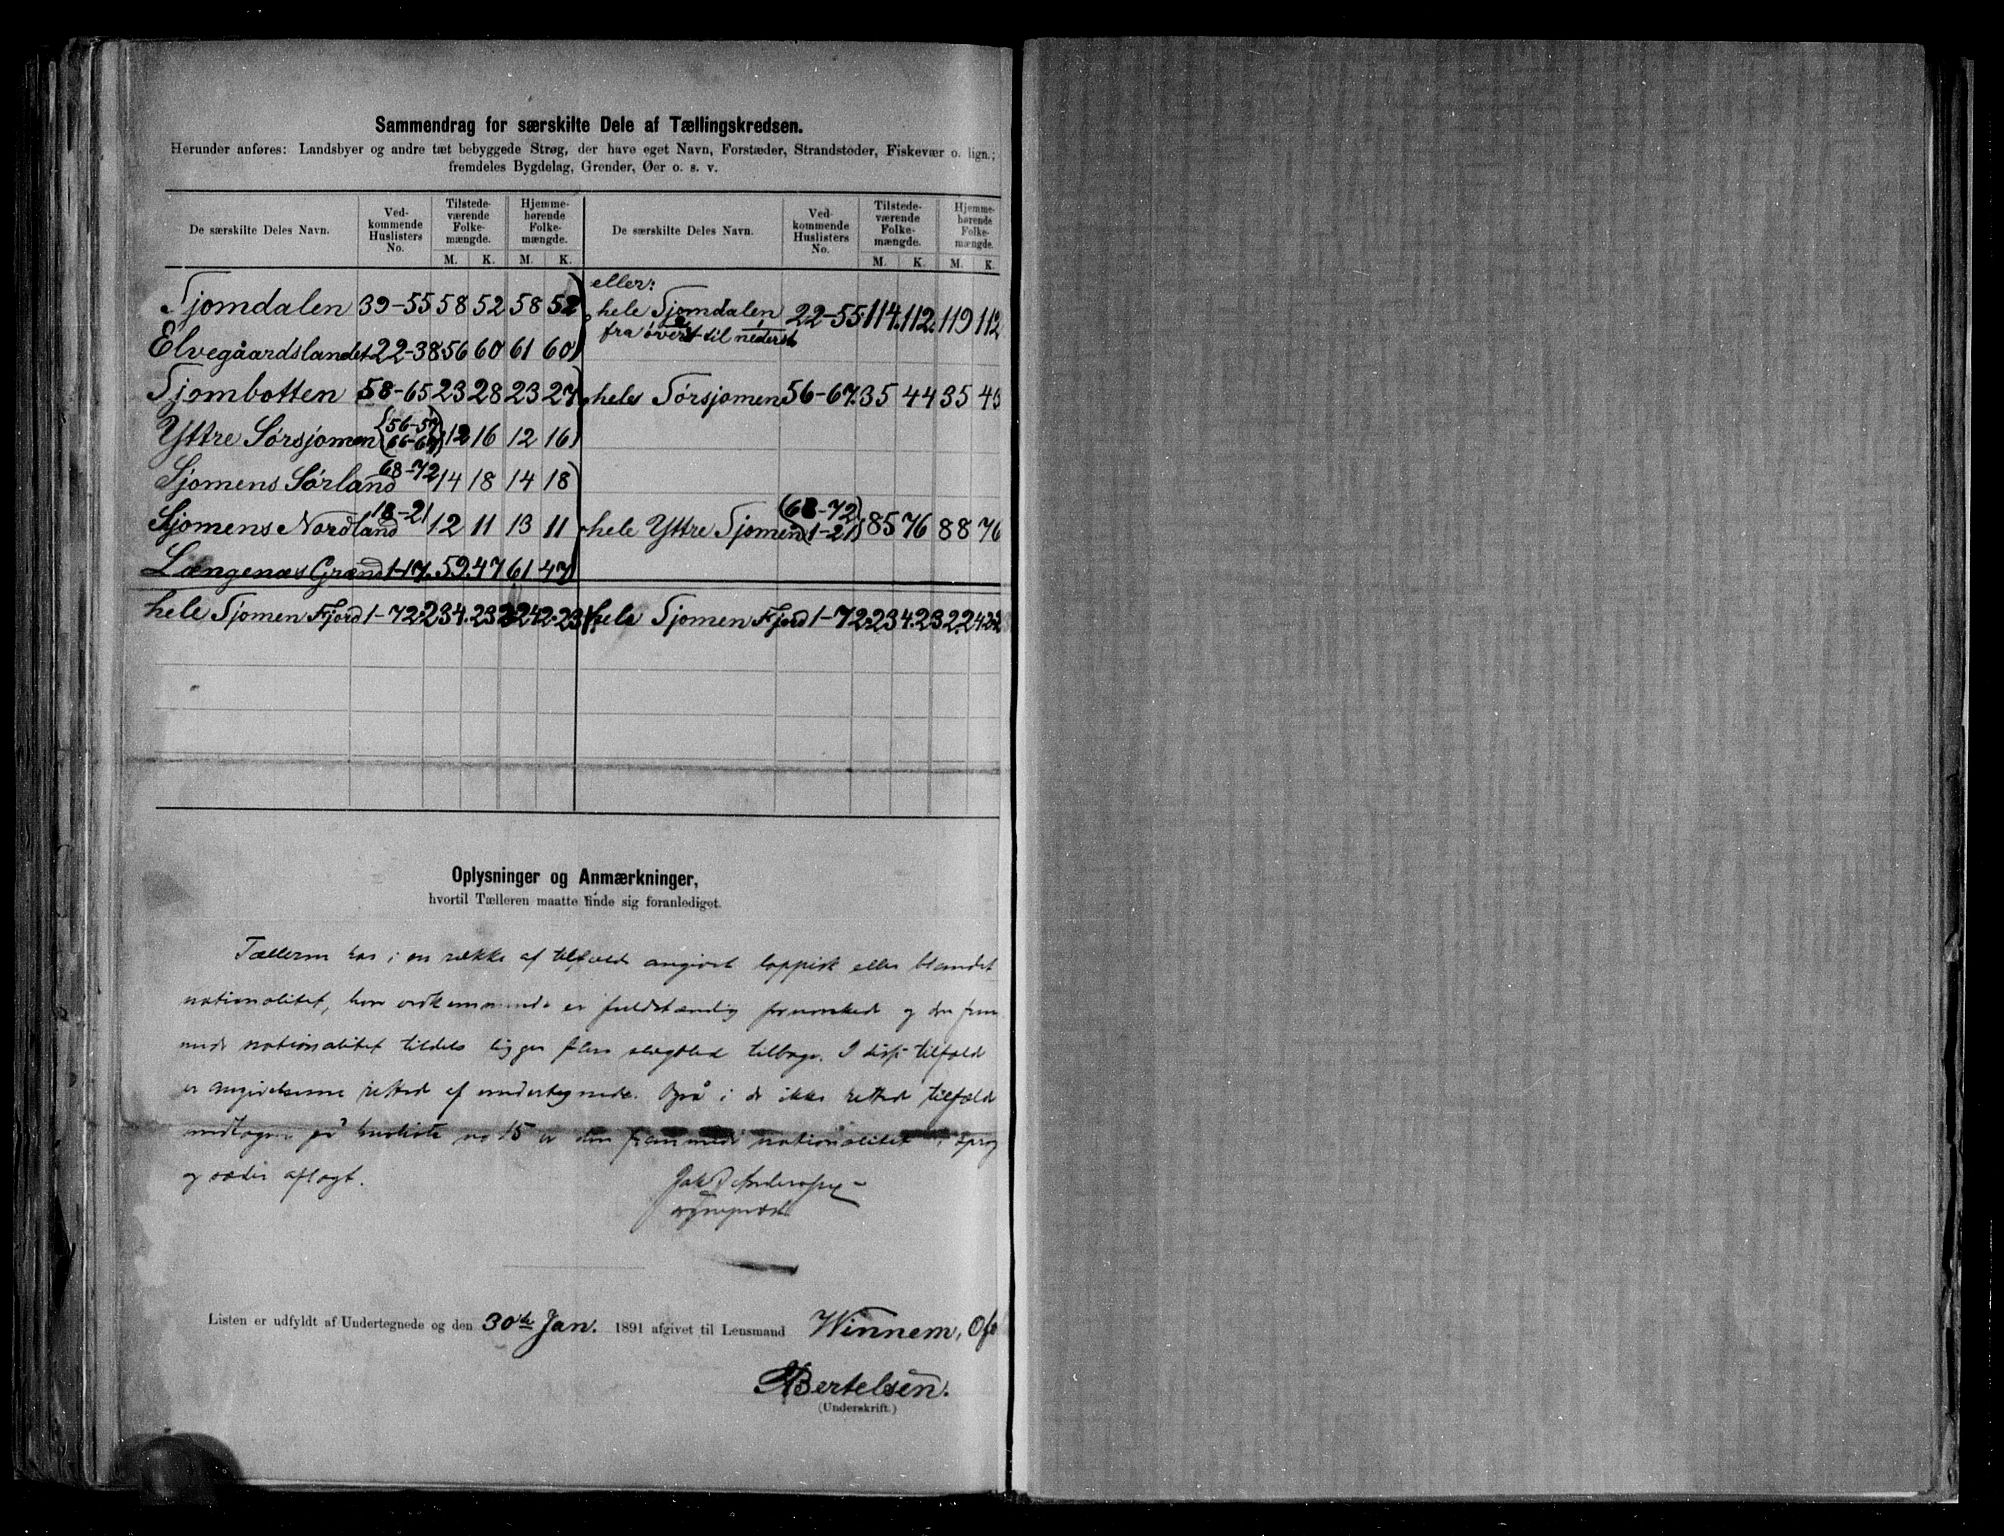 Sammendrag for særskilte Dele af Tællingskredsen.
Herunder anføres: Landsbyer og andre tæt bebyggede Strøg, der have eget Navn, Forstæder, Strandsteder, Fiskevær o. lign.;
fremdeles Bygdelag, Grender, Øer o. s. v.
De særskilte Deles Navn. Ved-kommende Huslisters No. Tilstede-værende Folke-mængde. Hjemme-hørende Folke-mængde. De særskilte Deles Navn. Ved-kommende Huslisters No. Tilstede-værende Folke-mængde. Hjemme-hørende Folke-mængde.
M. K. M. K. M. K. M. K.
eller:
Sjomdalen 39-55 58 52 58 52 hele Sjomdalen 22-55 114. 112. 119 112
fra øverst til nederst
Elvegåardslandet 22-38 56 60 61 60
Sjombotten 58-65 23 28 23 27 hele Sørsjomen 56-67. 35 44 35 43
Yttre Sørsjomen (56-57) (66-67) 12 16 12 16
Sjomens Sørland 68-72 14 18 14 18
Sjomens Nordland 18-21 12 11 13 11 hele Yttre Sjomen (68-72) (1-21) 85 76 88 76
Længenæs Grænd 1-17. 59. 47 61 47
hele Sjomen Fjord 1-72. 234. 232 242. 231. hele Sjomen Fjord 1-72. 234. 232. 242.
Oplysninger og Anmærkninger,
hvortil Tælleren maatte finde sig foranlediget.
Tælleren har i en række af tilfælde angivet lappisk eller blandet
nationalitet, hvor vedkommende er fuldstændig fornorskede og den frem
mede nationalitet tildels ligger flere slægtled tilbage. I disse tilfæld
er angivelserne rettede af undertegnede. Også i de ikke rettede tilfælde
undtagen på husliste no 15 er den fremmede nationalitet i sprog
og sæder aflagt.
Listen er udfyldt af Undertegnede og den 30te Jan. 1891 afgivet til Lensmand Winnem, Of
Bertelsen.
(Underskrift.)